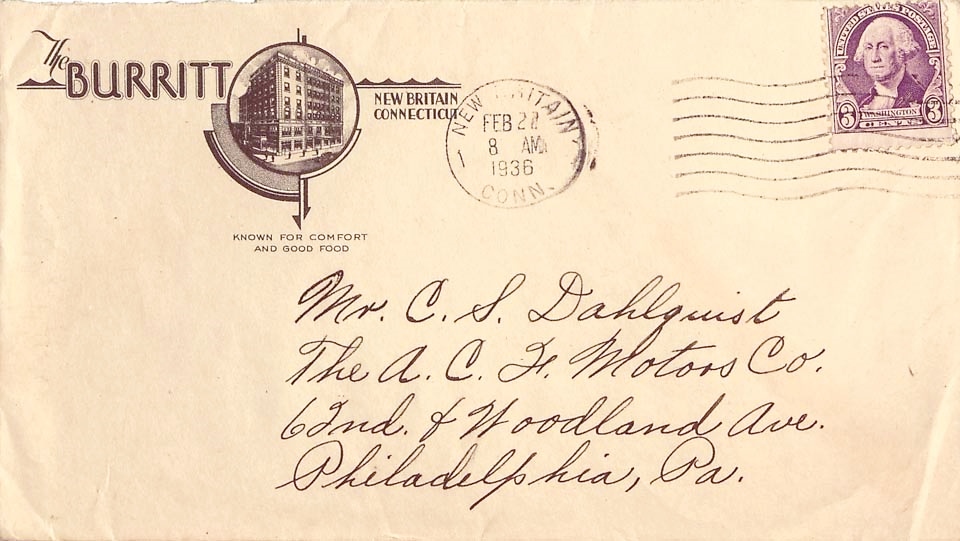 The
BURRITT
NEW BRITAIN
CONNECTICUT
KNOWN FOR COMFORT
AND GOOD FOOD
NEW BRITAIN
1
FEB
8 AM
1936
CONN.
UNITED STATES POSTAGE
3 WASHINGTON 3
CENTS
Mr. C. S. Dahlquist
The A. C. F. Motors Co.
62nd. & Woodland Ave.
Philadelphia, Pa.